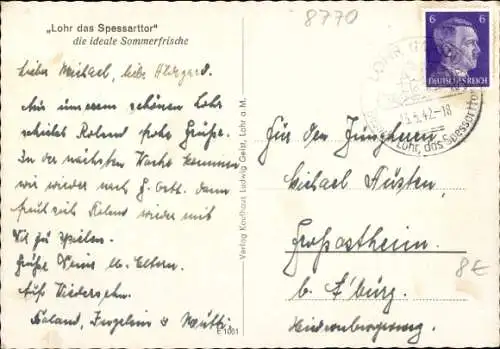 8770
„Lohr das Spessarttor“
die ideale Sommerfrische
Lieber Michael, liebe Hildegard.
Aus unserem schönen Lohr
schickt Roland frohe Grüße.
In der nächsten Woche kommen
wir wieder nach G. Osth. dann
freut sich Roland wieder mit
Dir zu spielen.
Grüße Deine lb. Eltern.
Auf Wiedersehn.
Roland, Ingelin u Mutti
Verlag Kaufhaus Ludwig Geist, Lohr a.M.
E 1001
6 6
DEUTSCHES REICH
LOHR
.5.42.-18
Lohr, das Spessarttor
Für den Jungherrn
Michael
Großostheim.
b. A'burg.
8 €